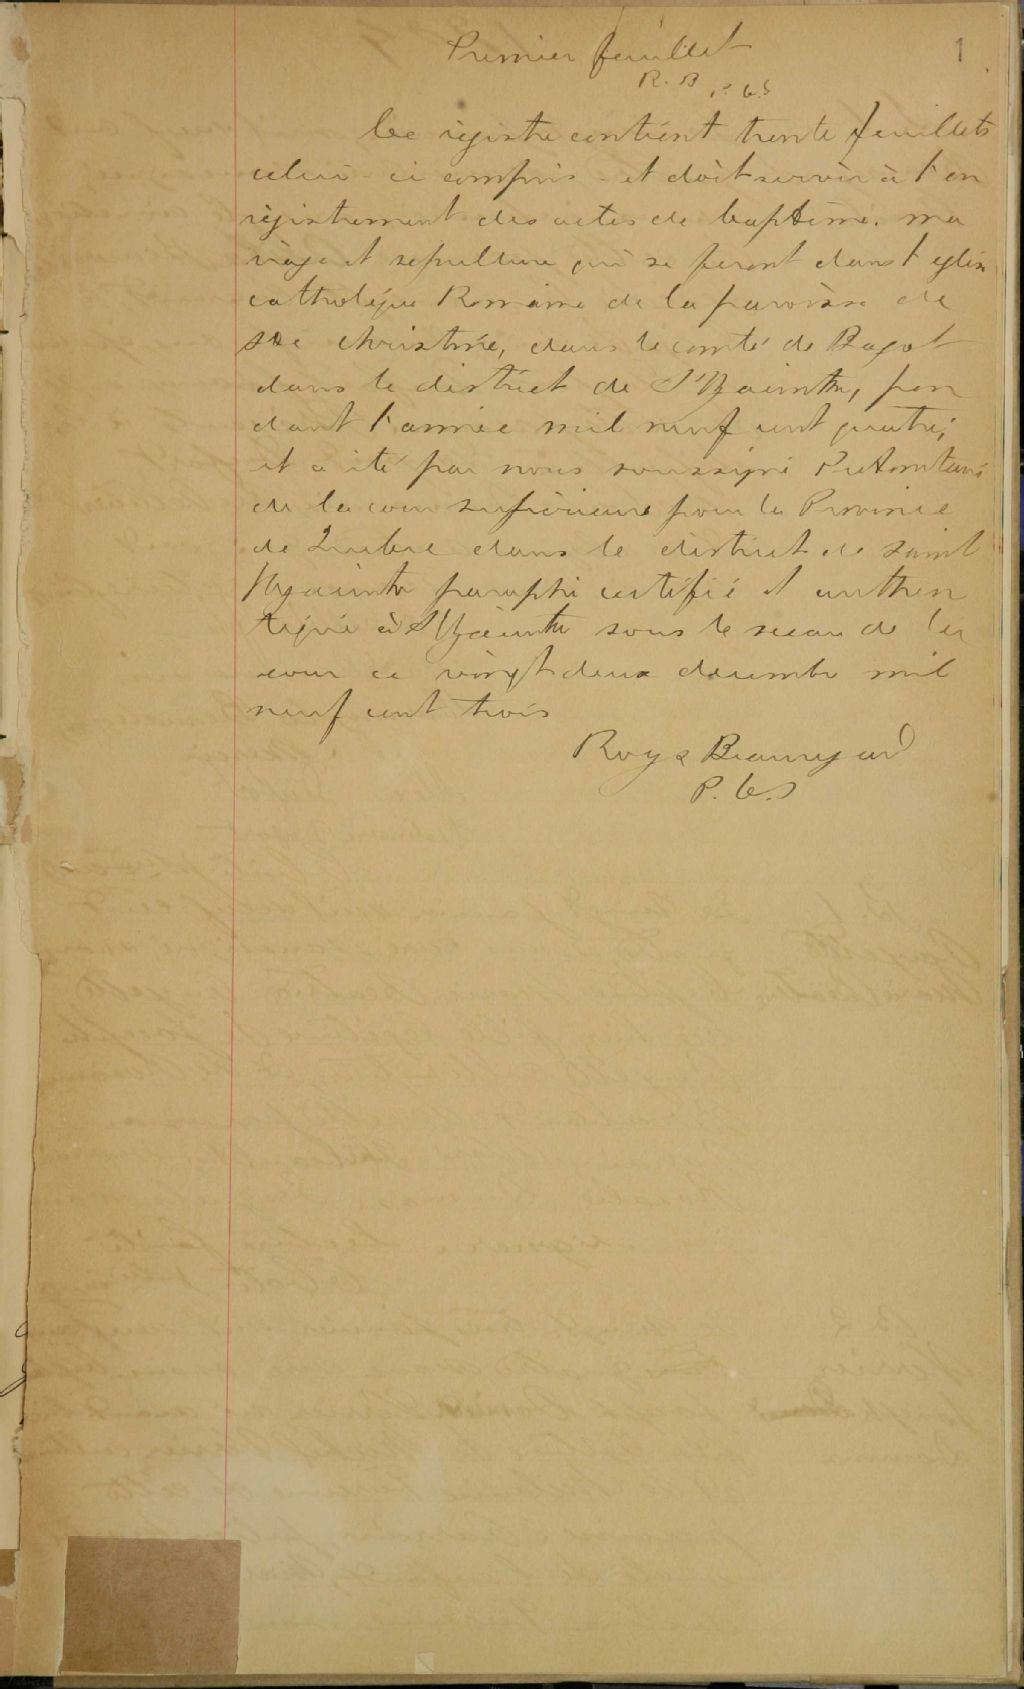 Premier feuillet
1
R. B P. C. S
Ce régistre contient trente feuillets
celui-ci compris et doit servir à l'en
régistrement des actes de baptême. ma
riage et sépulture qui se feront dans l'église
catholique Romaine de la paroisse de
Ste Christine, dans le comté de Bagot
dans le district de St Hyacinthe, pen
dant l'année mil neuf cent quatre,
et a été par nous soussigné Protonotaire
de la cour supérieure pour la Province
de Québec dans le district de Saint
Hyacinthe paraphé certifié et authen
tiqué à St Hyacinthe sous le sceau de la
cour ce vingt deux décembre mil
neuf cent trois
Roy & Beauregard
P. C. S